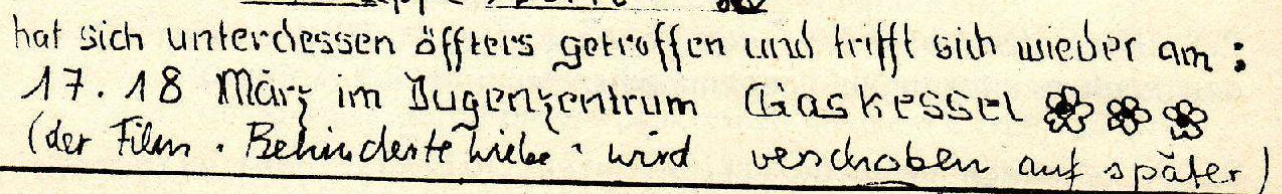 hat sich unterdessen öffters getroffen und trifft sich wieder am :
17. 18 März im Jugenzentrum Gaskessel
(der Film "Behinderte Liebe" wird verschoben auf später)